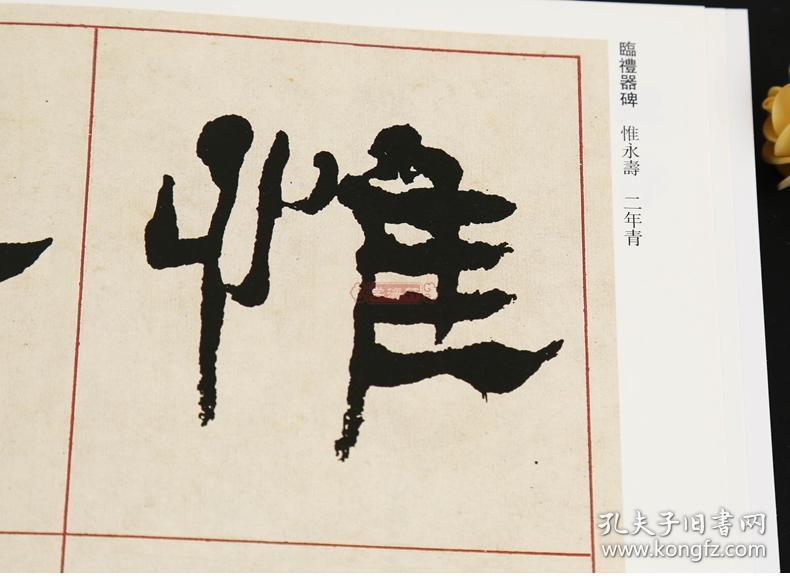 惟
臨禮器碑 惟永壽 二年青
一
孔夫子旧书网
www.kongfz.com